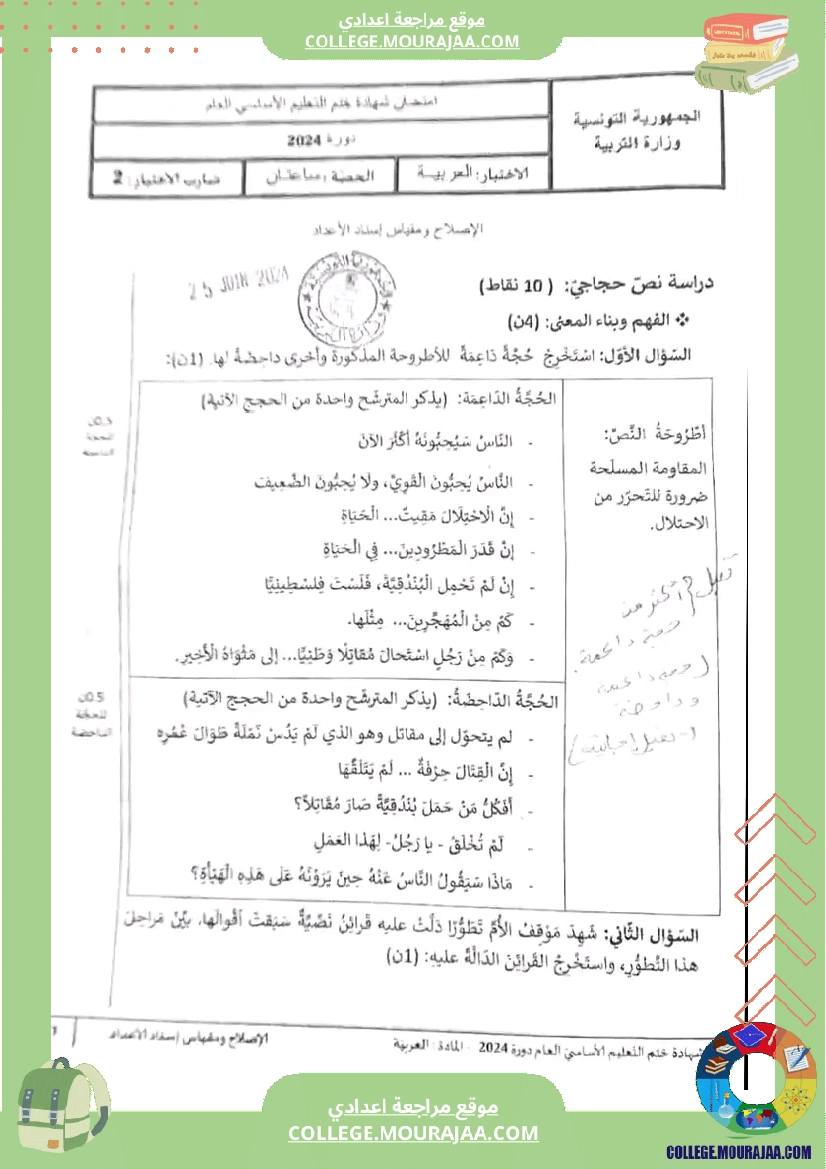 موقع مراجعة اعدادي
COLLEGE.MOURAJAA.COM
الجمهورية التونسية
وزارة التربية
امتحان شهادة ختم التعليم الأساسي العام
دورة 2024
الاختبار: العربية
الحصة: ساعتان
ضارب الاختبار: 2
الإصلاح ومقياس إسناد الأعداد
25 JUIN 2024
دراسة نصّ حجاجيّ: (10 نقاط)
❖ الفهم وبناء المعنى: (4ن)
السّؤال الأوّل: اسْتَخْرِجْ حُجَّةً دَاعِمَةً للأطروحة المذكورة وأخرى داحِضَةً لها. (1ن):
أطْرُوحَةُ النَّصِّ:
المقاومة المسلّحة
ضرورة للتّحرّر من
الاحتلال.
الحُجَّةُ الدَّاعِمَة: (يذكر المترشّح واحدة من الحجج الآتية)
- النَّاسُ سَيُحِبُّونَهُ أكْثَرَ الآنَ
- النَّاسُ يُحِبُّونَ الْقَوِيَّ، ولَا يُحِبُّونَ الضَّعِيفَ
- إنَّ الْاحْتِلَالَ مَقِيتٌ... الْحَيَاةِ
- إنَّ قَدَرَ الْمَطْرُودِينَ... فِي الْحَيَاةِ
- إنْ لَمْ تَحْمِل الْبُنْدُقِيَّةَ، فَلَسْتَ فِلِسْطِينِيًّا
- كَمْ مِنْ الْمُهَجَّرِينَ... مِثْلَها.
- وَكَمْ مِنْ رَجُلٍ اسْتَحالَ مُقاتِلًا وَطَنِيًّا... إلى مَثْوَاهُ الْأَخِيرِ.
0.5ن
للحجّة
الداعمة
الحُجَّةُ الدَّاحِضَةُ: (يذكر المترشّح واحدة من الحجج الآتية)
- لم يتحوّل إلى مقاتل وهو الذي لَمْ يَدُسْ نَمْلَةً طَوَالَ عُمُرِه
- إنَّ الْقِتَالَ حِرْفَةٌ ... لَمْ يَتَلَقَّهَا
- أفَكُلُّ مَنْ حَمَلَ بُنْدُقِيَّةً صَارَ مُقَاتِلاً؟
- لَمْ تُخْلَقْ - يا رَجُلُ- لِهَذا العَمَلِ
- مَاذَا سَيَقُولُ النَّاسُ عَنْهُ حِينَ يَرَوْنَهُ عَلَى هَذِهِ الْهَيْأَةِ؟
0.5ن
للحجّة
الداحضة
السّؤال الثّاني: شَهِدَ مَوْقِفُ الأُمِّ تَطَوُّرًا دَلَّتْ عليه قَرائِنُ نَصِّيَّةٌ سَبَقتْ أقْوالَها. بيِّنْ مَراحِلَ
هذا التَّطوُّرِ، واستَخْرِجْ القَرائِنَ الدّالَّةَ عليهِ: (1ن)
شهادة ختم التعليم الأساسيّ العام دورة 2024 - المادة: العربيّة
الإصلاح ومقياس إسناد الأعداد
1
موقع مراجعة اعدادي
COLLEGE.MOURAJAA.COM
COLLEGE.MOURAJAA.COM